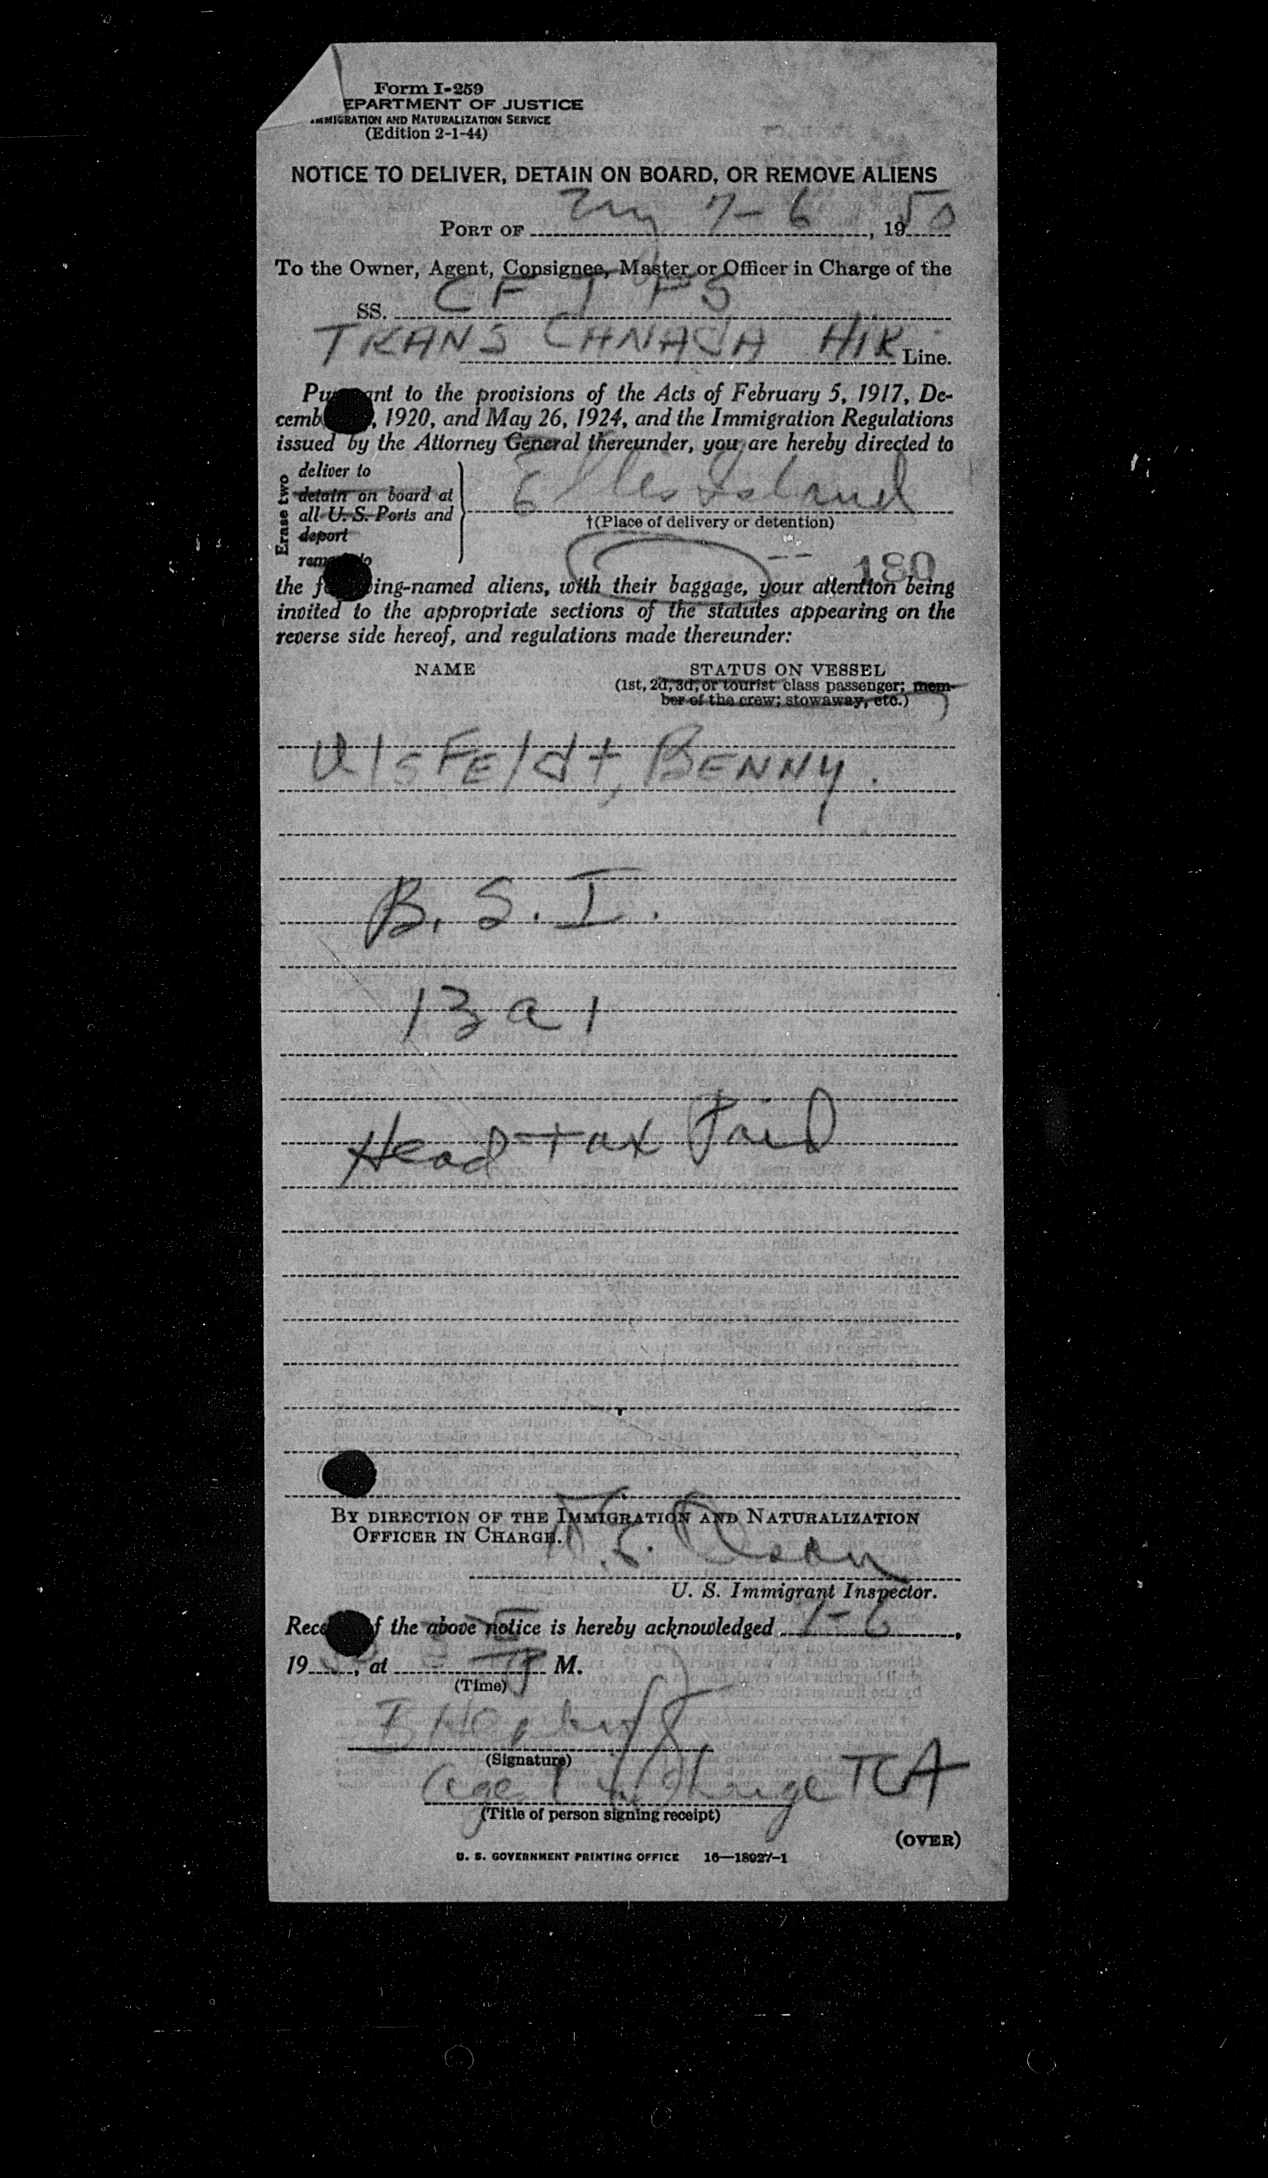 Form I-259
EPARTMENT OF JUSTICE
IMMIGRATION AND NATURALIZATION SERVICE
(Edition 2-1-44)
NOTICE TO DELIVER, DETAIN ON BOARD, OR REMOVE ALIENS
PORT OF 7-6, 1950
To the Owner, Agent, Consignee, Master or Officer in Charge of the
SS. CF T FS
TRANS CANADA AIR Line.
Pu ant to the provisions of the Acts of February 5, 1917, De-
cemb , 1920, and May 26, 1924, and the Immigration Regulations
issued by the Attorney General thereunder, you are hereby directed to
Erase two
deliver to
detain on board at
all U. S. Ports and
deport
rem to
Ellis Island
†(Place of delivery or detention)
180
the f ing-named aliens, with their baggage, your attention being
invited to the appropriate sections of the statutes appearing on the
reverse side hereof, and regulations made thereunder:
NAME STATUS ON VESSEL
(1st, 2d, 3d, or tourist class passenger; mem-
ber of the crew; stowaway, etc.)
UlsFeldt, BENNY.
B. S. I.
13 a 1
Head tax Paid
BY DIRECTION OF THE IMMIGRATION AND NATURALIZATION
OFFICER IN CHARGE.
U. S. Immigrant Inspector.
Rece f the above notice is hereby acknowledged 7-6,
19 , at P M.
(Time)
(Signature)
Agent in Charge TCA
(Title of person signing receipt)
(OVER)
U. S. GOVERNMENT PRINTING OFFICE 16—18927-1